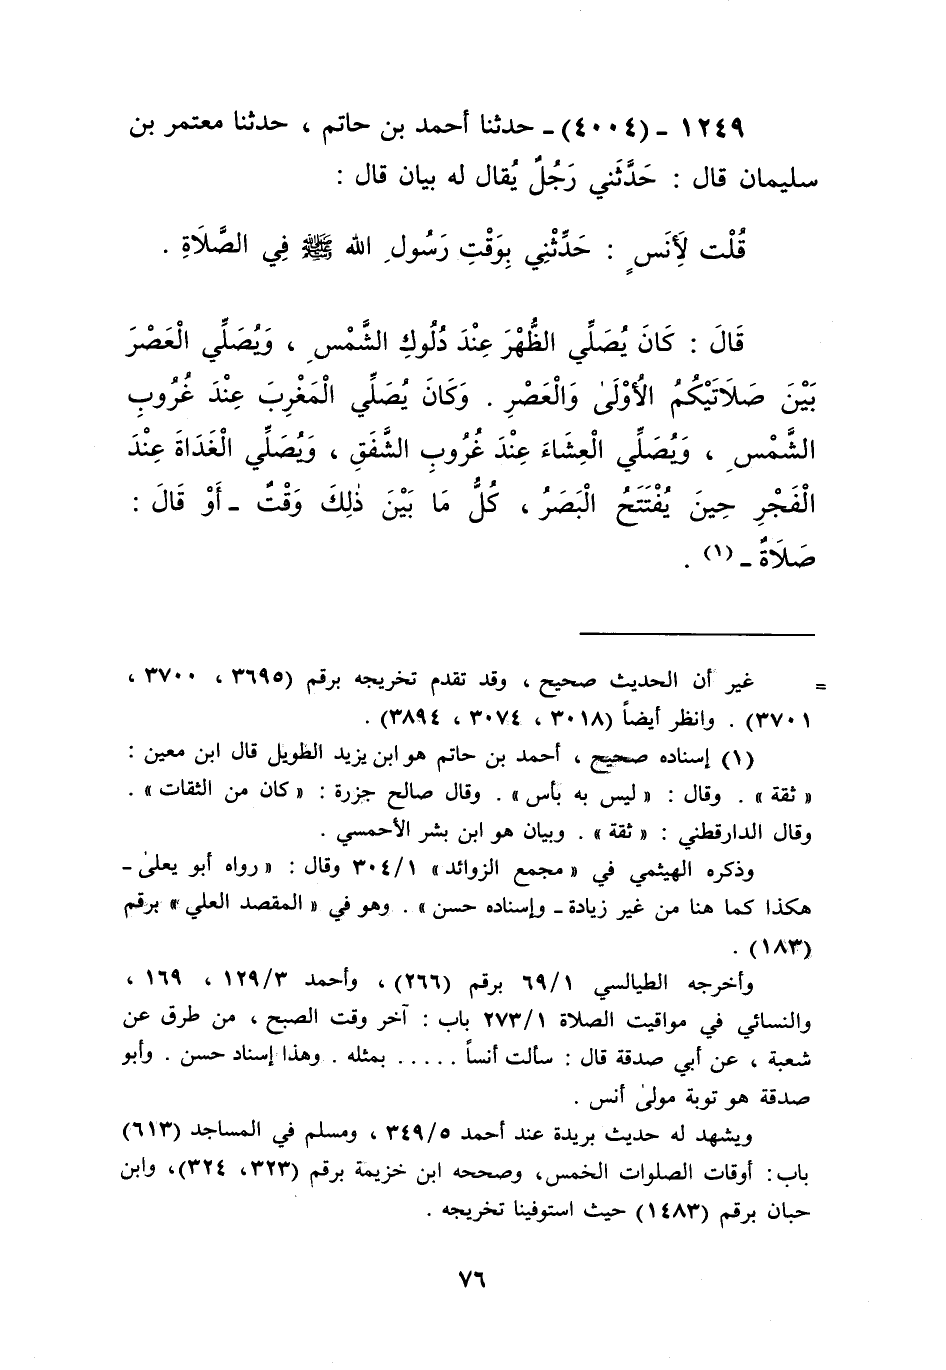 ١٢٤٩ ـ (٤٠٠٤) ـ حدثنا أحمد بن حاتم ، حدثنا معتمر بن
سليمان قال : حَدَّثَني رَجُلٌ يُقال له بيان قال :
قُلْت لِأَنَسٍ : حَدِّثْنِي بِوَقْتِ رَسُولِ الله ﷺ فِي الصَّلَاةِ .
قَالَ : كَانَ يُصَلِّي الظُّهْرَ عِنْدَ دُلُوكِ الشَّمْسِ ، وَيُصَلِّي الْعَصْرَ
بَيْنَ صَلَاتَيْكُمُ الْأُوْلَىٰ وَالْعَصْرِ . وَكَانَ يُصَلِّي الْمَغْرِبَ عِنْدَ غُرُوبِ
الشَّمْسِ ، وَيُصَلِّي الْعِشَاءَ عِنْدَ غُرُوبِ الشَّفَقِ ، وَيُصَلِّي الْغَدَاةَ عِنْدَ
الْفَجْرِ حِينَ يُفْتَتَحُ الْبَصَرُ ، كُلُّ مَا بَيْنَ ذٰلِكَ وَقْتٌ ـ أَوْ قَالَ :
صَلَاةٌ ـ (١) .
= غير أن الحديث صحيح ، وقد تقدم تخريجه برقم (٣٦٩٥ ، ٣٧٠٠ ،
٣٧٠١) . وانظر أيضاً (٣٠١٨ ، ٣٠٧٤ ، ٣٨٩٤) .
(١) إسناده صحيح ، أحمد بن حاتم هو ابن يزيد الطويل قال ابن معين :
« ثقة » . وقال : « ليس به بأس » . وقال صالح جزرة : « كان من الثقات » .
وقال الدارقطني : « ثقة » . وبيان هو ابن بشر الأحمسي .
وذكره الهيثمي في « مجمع الزوائد » ٣٠٤/١ وقال : « رواه أبو يعلىٰ ـ
هكذا كما هنا من غير زيادة ـ وإسناده حسن » . وهو في « المقصد العلي » برقم
(١٨٣) .
وأخرجه الطيالسي ٦٩/١ برقم (٢٦٦) ، وأحمد ١٢٩/٣ ، ١٦٩ ،
والنسائي في مواقيت الصلاة ٢٧٣/١ باب : آخر وقت الصبح ، من طرق عن
شعبة ، عن أبي صدقة قال : سألت أنساً ..... بمثله . وهذا إسناد حسن . وأبو
صدقة هو توبة مولىٰ أنس .
ويشهد له حديث بريدة عند أحمد ٣٤٩/٥ ، ومسلم في المساجد (٦١٣)
باب : أوقات الصلوات الخمس، وصححه ابن خزيمة برقم (٣٢٣، ٣٢٤)، وابن
حبان برقم (١٤٨٣) حيث استوفينا تخريجه .
٧٦